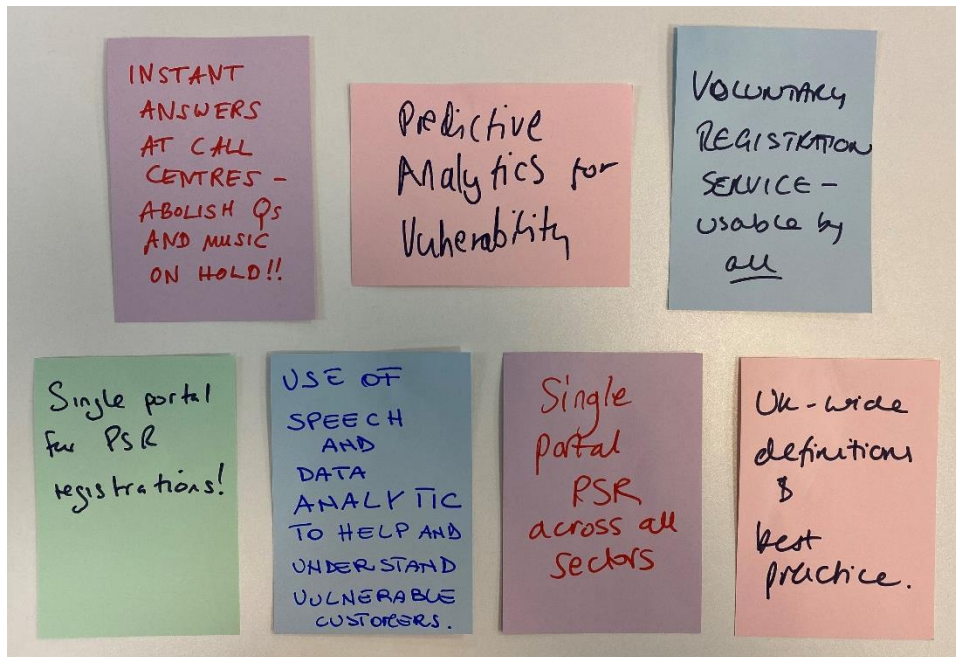 INSTANT
ANSWERS
AT CALL
CENTRES -
ABOLISH Qs
AND MUSIC
ON HOLD!!
Predictive
Analytics for
Vulnerability
VOLUNTARY
REGISTRATION
SERVICE -
usable by
all
Single portal
for PSR
registrations!
USE OF
SPEECH
AND
DATA
ANALYTIC
TO HELP AND
UNDERSTAND
VULNERABLE
CUSTOMERS.
Single
portal
PSR
across all
sectors
UK-wide
definitions
&
best
practice.